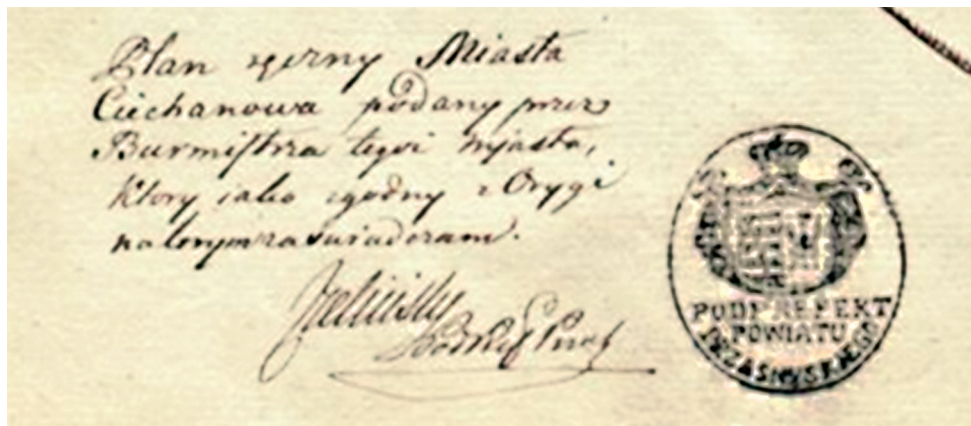 Plan ręczny Miasta
Ciechanowa podany przez
Burmistrza tegoi Mjasta,
ktory iako zgodny z Orygi
nalnym zaswiadczam.
Podpref
PODPREFEKT
POWIATU
PRZASNYSKIEGO